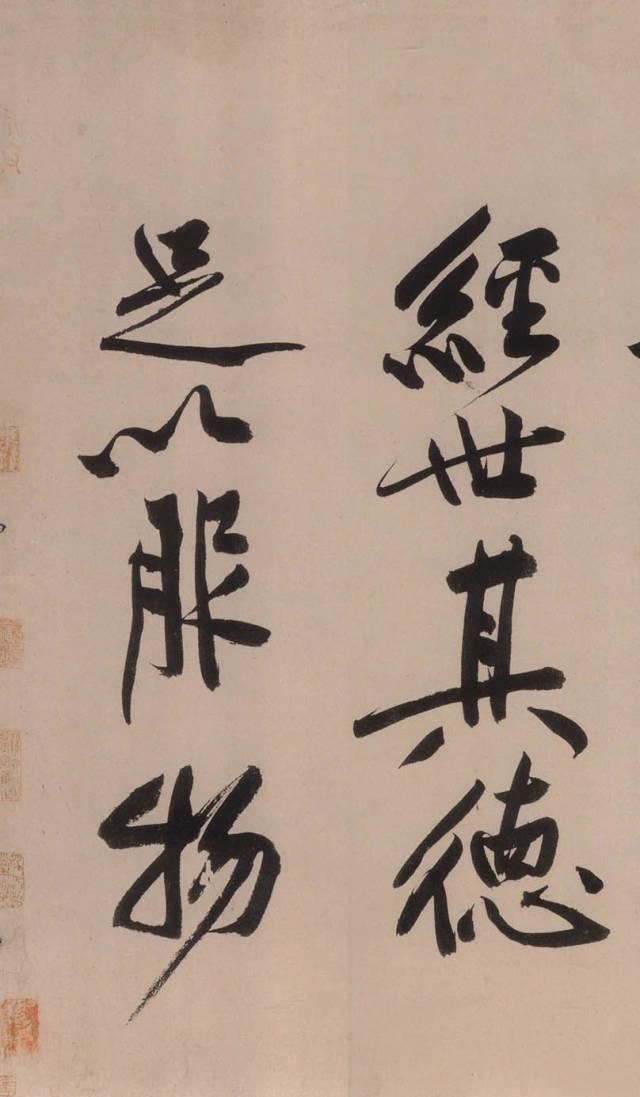 經世其德
足以服物